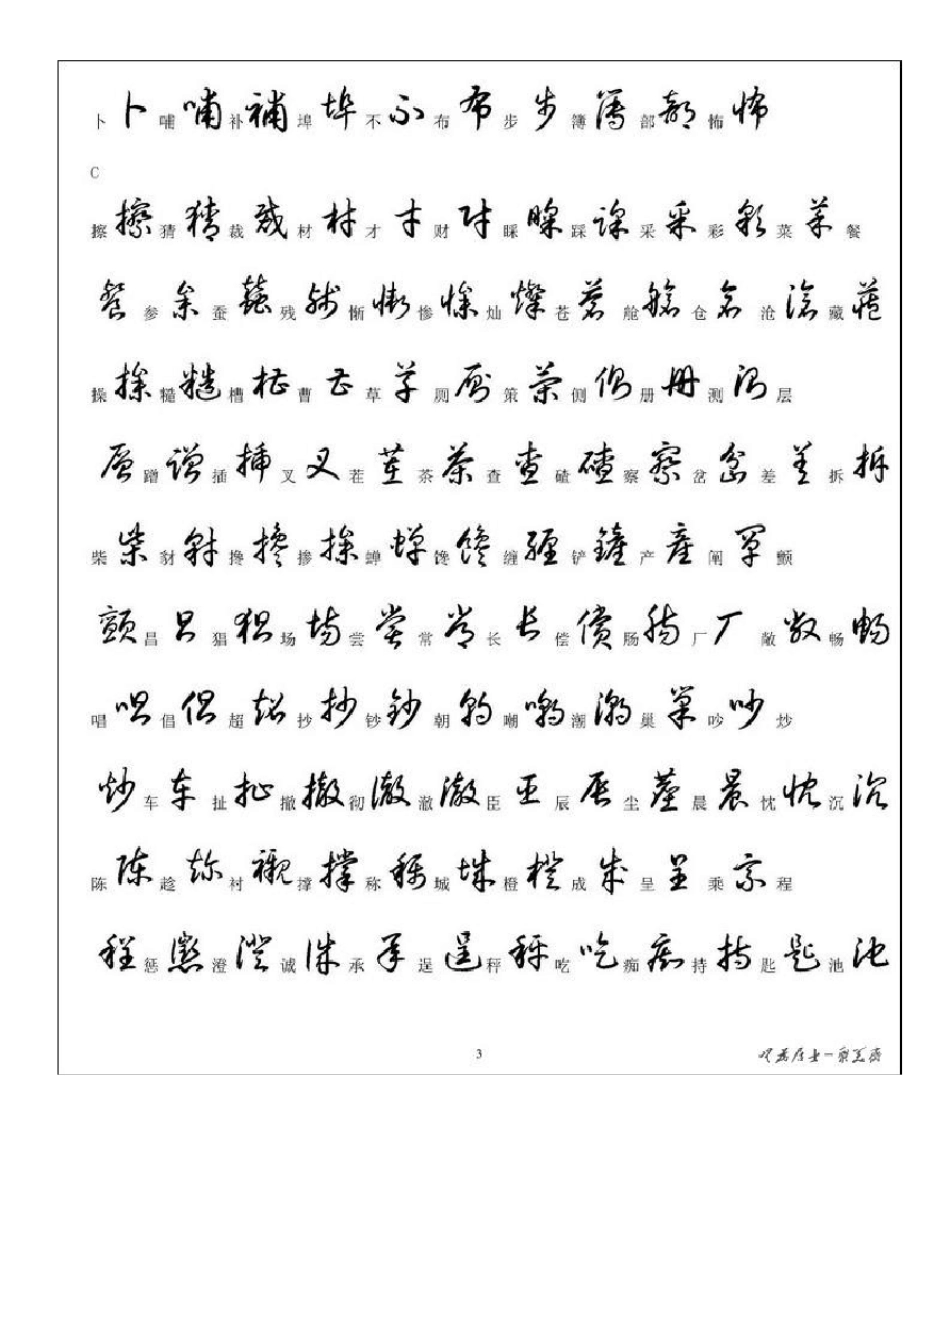 卜 卜 哺 哺 补 補 埠 埠 不 不 布 布 步 步 簿 簿 部 部 怖 怖
C
擦 擦 猜 猜 裁 裁 材 材 才 才 财 财 睬 睬 踩 踩 采 采 彩 彩 菜 菜 餐
餐 参 参 蚕 蚕 残 残 惭 惭 惨 惨 灿 灿 苍 苍 舱 舱 仓 仓 沧 沧 藏 藏
操 操 糙 糙 槽 槽 曹 曹 草 草 厕 厕 策 策 侧 侧 册 册 测 测 层
层 蹭 蹭 插 插 叉 叉 茬 茬 茶 茶 查 查 碴 碴 察 察 岔 岔 差 差 拆 拆
柴 柴 豺 豺 搀 搀 掺 掺 蝉 蝉 馋 馋 缠 缠 铲 铲 产 產 阐 阐 颤
颤 昌 昌 猖 猖 场 场 尝 尝 常 常 长 长 偿 償 肠 肠 厂 厂 敞 敞 畅 畅
唱 唱 倡 倡 超 超 抄 抄 钞 鈔 朝 朝 嘲 嘲 潮 潮 巢 巢 吵 吵 炒
炒 车 车 扯 扯 撤 撤 彻 澈 澈 澈 臣 臣 辰 辰 尘 尘 晨 晨 忱 忱 沉 沉
陈 陈 趁 趁 衬 襯 撑 撑 称 称 城 城 橙 橙 成 成 呈 呈 乘 乘 程
程 惩 惩 澄 澄 诚 诚 承 承 逞 逞 秤 秤 吃 吃 痴 痴 持 持 匙 匙 池 池
3